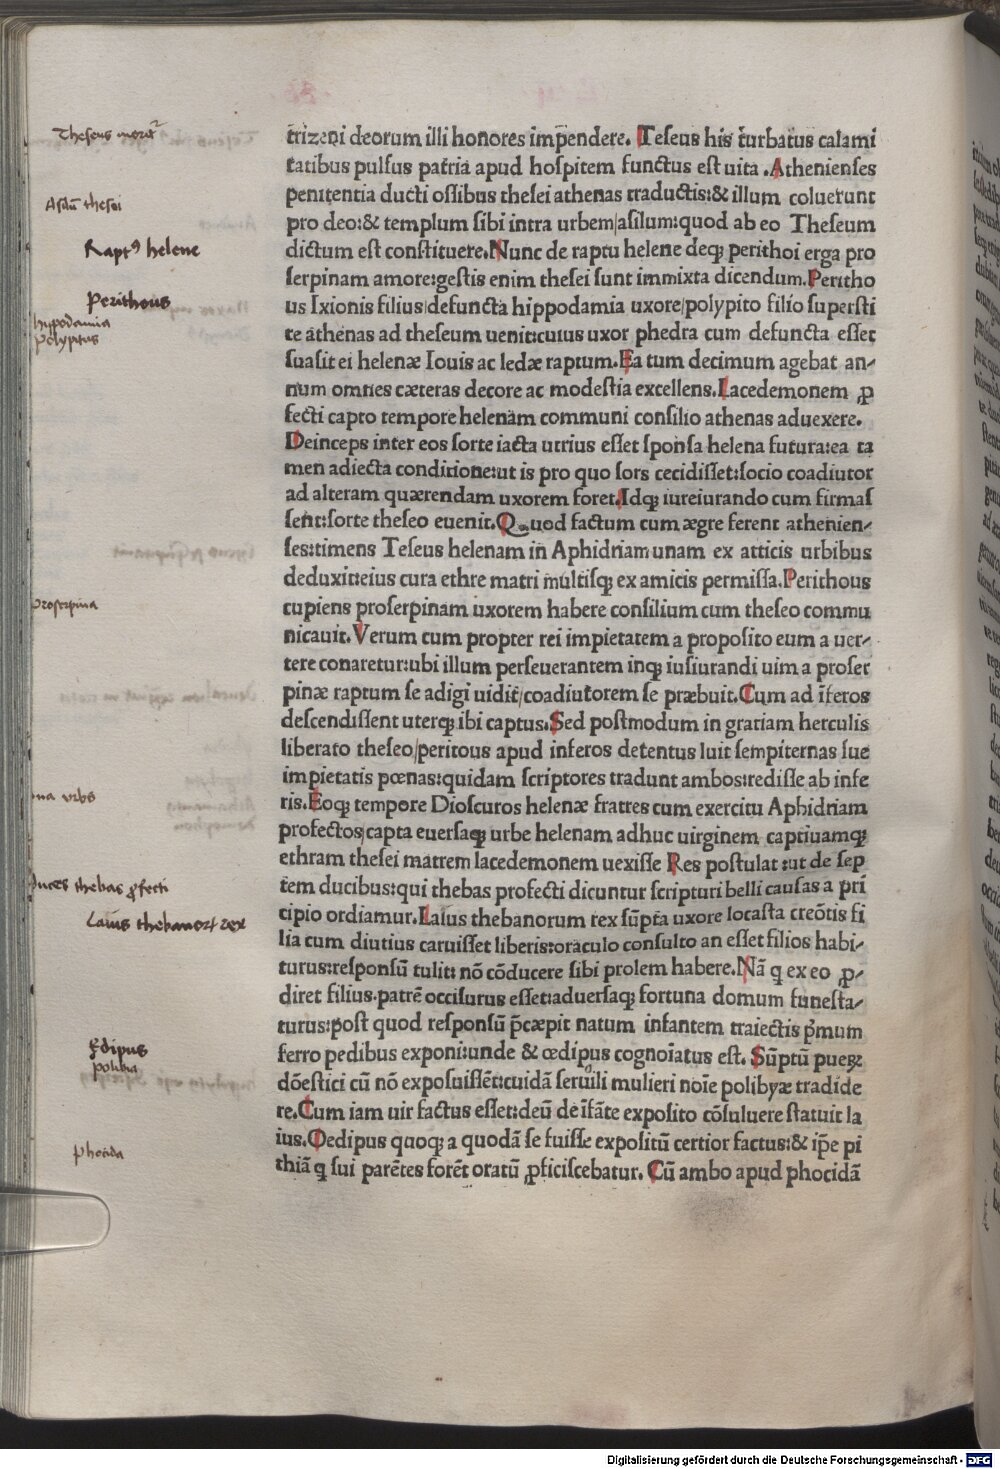 Theseus moritᷣ
trizeni deorum illi honores imp̄endere. Teseus his turbatus calami
tatibus pulſus patria apud hoſpitem functus eſt uita . Athenienſes
Aſilũ theſei
penitentia ducti oſſibus theſei athenas traductis:& illum coluerunt
pro deo:& templum ſibi intra urbem/aſilum:quod ab eo Theſeum
Raptꝰ helene
dictum eſt conſtituere.Nunc de raptu helene deqꝫ perithoi erga pro
ſerpinam amore:geſtis enim theſei ſunt immixta dicendum.Peritho
Perithous
us Ixionis filius/defuncta hippodamia uxore/polypito filio ſuperſti
hypodamia
polypitus
te athenas ad theſeum uenit:cuius uxor phedra cum defuncta eſſet
ſuaſit ei helenæ Iouis ac ledæ raptum.Ea tum decimum agebat an⸗
num omnes cæteras decore ac modeſtia excellens.Lacedemonem ꝓ
fecti capto tempore helenam communi conſilio athenas aduexere.
Deinceps inter eos ſorte iacta utrius eſſet ſponſa helena futura:ea ta
men adiecta conditione:ut is pro quo ſors cecidiſſet:ſocio coadiutor
ad alteram quærendam uxorem foret.Idqꝫ iureiurando cum firmaſ
ſent:ſorte theſeo euenit.Quod factum cum ægre ferent athenien⸗
ſes:timens Teſeus helenam in Aphidriam unam ex atticis urbibus
deduxit:eius cura ethre matri multiſqꝫ ex amicis permiſſa.Perithous
proſerpina
cupiens proſerpinam uxorem habere conſilium cum theſeo commu
nicauit.Verum cum propter rei impietatem a propoſito eum a uer⸗
tere conaretur:ubi illum perſeuerantem inqꝫ iuſiurandi uim a proſer
pinæ raptum ſe adigi uidit/coadiutorem ſe præbuit.Cum ad ĩferos
deſcendiſſent uterqꝫ ibi captus.Sed poſtmodum in gratiam herculis
liberato theſeo/peritous apud inferos detentus luit ſempiternas ſue
impietatis pœnas:quidam ſcriptores tradunt ambos:rediſſe ab infe
na vrbs
ris.Eoqꝫ tempore Dioſcuros helenæ fratres cum exercitu Aphidriam
profectos/capta euerſaqꝫ urbe helenam adhuc uirginem captiuamqꝫ
ethram theſei matrem lacedemonem uexiſſe Res poſtulat :ut de ſep
duces thebas ꝓfecti
tem ducibus:qui thebas profecti dicuntur ſcripturi belli cauſas a pri
Laius thebanorꝝ rex
cipio ordiamur.Laius thebanorum rex ſũpta uxore locaſta creõtis fi
lia cum diutius caruiſſet liberis:oraculo conſulto an eſſet filios habi⸗
turus:reſponſũ tulit: nõ cõducere ſibi prolem habere.Nã q ex eo ꝓ⸗
diret filius.patrẽ occiſurus eſſet:aduerſaqꝫ fortuna domum funeſta⸗
turus:poſt quod reſponſũ p̃cæpit natum infantem traiectis p̃mum
Edipus
polibia
ferro pedibus exponi:unde & œdipus cognoĩatus eſt. Sũptũ pueꝝ
dõeſtici cũ nõ expoſuiſſẽt:cuidã ſeruili mulieri noĩe polibyæ tradide
re.Cum iam uir factus eſſet:deũ de ĩfãte expoſito cõſuluere ſtatuit la
ius.Oedipus quoqꝫ a quodã ſe fuiſſe expoſitũ certior factus:& ip̃e pi
Phocida
thiã q ſui parẽtes forẽt oratũ ꝓficiſcebatur. Cũ ambo apud phocidã
Digitalisierung gefördert durch die Deutsche Forschungsgemeinschaft - DFG